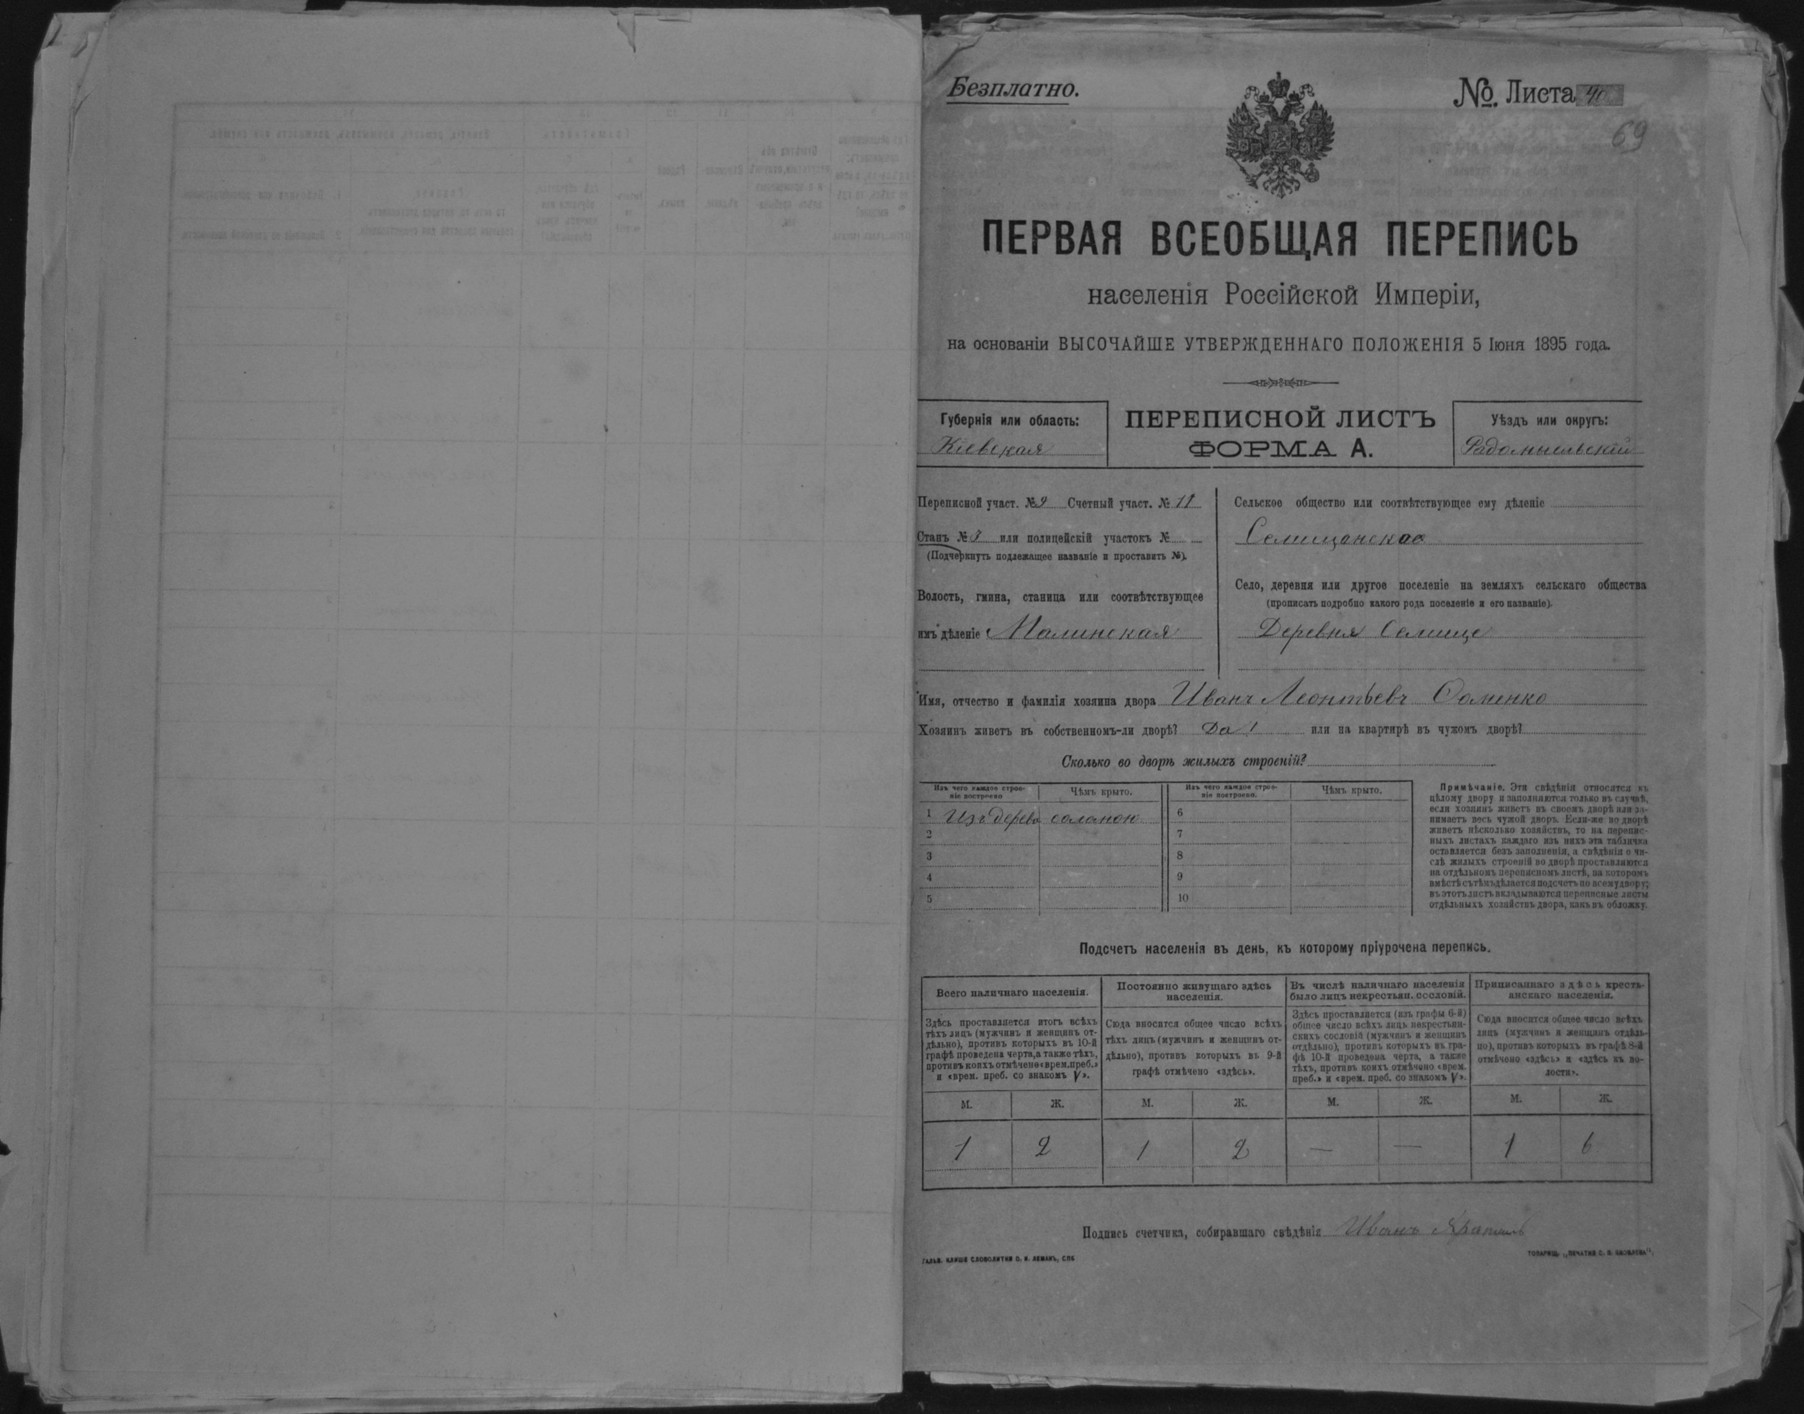 Безплатно.
№. Листа 40
69
ПЕРВАЯ ВСЕОБЩАЯ ПЕРЕПИСЬ
населенія Россійской Имперіи,
на основаніи ВЫСОЧАЙШЕ УТВЕРЖДЕННАГО ПОЛОЖЕНІЯ 5 Іюня 1895 года.
Губернія или область:
Кіевская
ПЕРЕПИСНОЙ ЛИСТЪ
ФОРМА А.
Уѣздъ или округъ:
Радомысльскій
Переписной участ. № 9 Счетный участ. № 11
Станъ № 3 или полицейскій участокъ №
(Подчеркнуть подлежащее названіе и проставить №).
Волость, гмина, станица или соотвѣтствующее
имъ дѣленіе Малинская
Сельское общество или соотвѣтствующее ему дѣленіе
Селищанское
Село, деревня или другое поселеніе на земляхъ сельскаго общества
(прописать подробно какого рода поселеніе и его названіе).
Деревня Селище
Имя, отчество и фамилія хозяина двора Иванъ Леонтьевъ
Хозяинъ живетъ въ собственномъ-ли дворѣ? Да 1 или на квартирѣ въ чужомъ дворѣ?
Сколько во дворѣ жилыхъ строеній?
Изъ чего каждое строе-
ніе построено
Чѣмъ крыто.
Изъ чего каждое строе-
ніе построено.
Чѣмъ крыто.
1 Изъ дерева соломою
2
3
4
5
6
7
8
9
10
Примѣчаніе. Эти свѣдѣнія относятся къ
цѣлому двору и заполняются только въ случаѣ,
если хозяинъ живетъ въ своемъ дворѣ или за-
нимаетъ весь чужой дворъ. Если-же во дворѣ
живетъ нѣсколько хозяйствъ, то на перепис-
ныхъ листахъ каждаго изъ нихъ эта табличка
оставляется безъ заполненія, а свѣдѣнія о чи-
слѣ жилыхъ строеній во дворѣ проставляются
на отдѣльномъ переписномъ листѣ, на которомъ
вмѣстѣ съ тѣмъ дѣлается подсчетъ по всему двору;
въ этотъ листъ вкладываются переписные листы
отдѣльныхъ хозяйствъ двора, какъ въ обложку.
Подсчетъ населенія въ день, къ которому пріурочена перепись.
Всего наличнаго населенія.
Здѣсь проставляется итогъ всѣхъ
тѣхъ лицъ (мужчинъ и женщинъ от-
дѣльно), противъ которыхъ въ 10-й
графѣ проведена черта, а также тѣхъ,
противъ коихъ отмѣчено «врем. преб.»
и «врем. преб. со знакомъ V».
Постоянно живущаго здѣсь
населенія.
Сюда вносится общее число всѣхъ
тѣхъ лицъ (мужчинъ и женщинъ от-
дѣльно), противъ которыхъ въ 9-й
графѣ отмѣчено «здѣсь».
Въ числѣ наличнаго населенія
было лицъ некрестьян. сословій.
Здѣсь проставляется (изъ графы 6-й)
общее число всѣхъ лицъ некрестьян-
скихъ сословій (мужчинъ и женщинъ
отдѣльно), противъ которыхъ въ гра-
фѣ 10-й проведена черта, а также
тѣхъ, противъ коихъ отмѣчено «врем.
преб.» и «врем. преб. со знакомъ V».
Приписаннаго здѣсь кресть-
янскаго населенія.
Сюда вносится общее число всѣхъ
лицъ (мужчинъ и женщинъ отдѣль-
но), противъ которыхъ въ графѣ 8-й
отмѣчено «здѣсь» и «здѣсь въ во-
лости».
М. Ж. М. Ж. М. Ж. М. Ж.
1 2 1 2 — — 1 6
Подпись счетчика, собиравшаго свѣдѣнія Иванъ
ГАЛЬВ. КЛИШЕ СЛОВОЛИТНИ О. И. ЛЕМАНЪ, СПБ
ТОВАРИЩ. „ПЕЧАТНЯ С. П. ЯКОВЛЕВА".